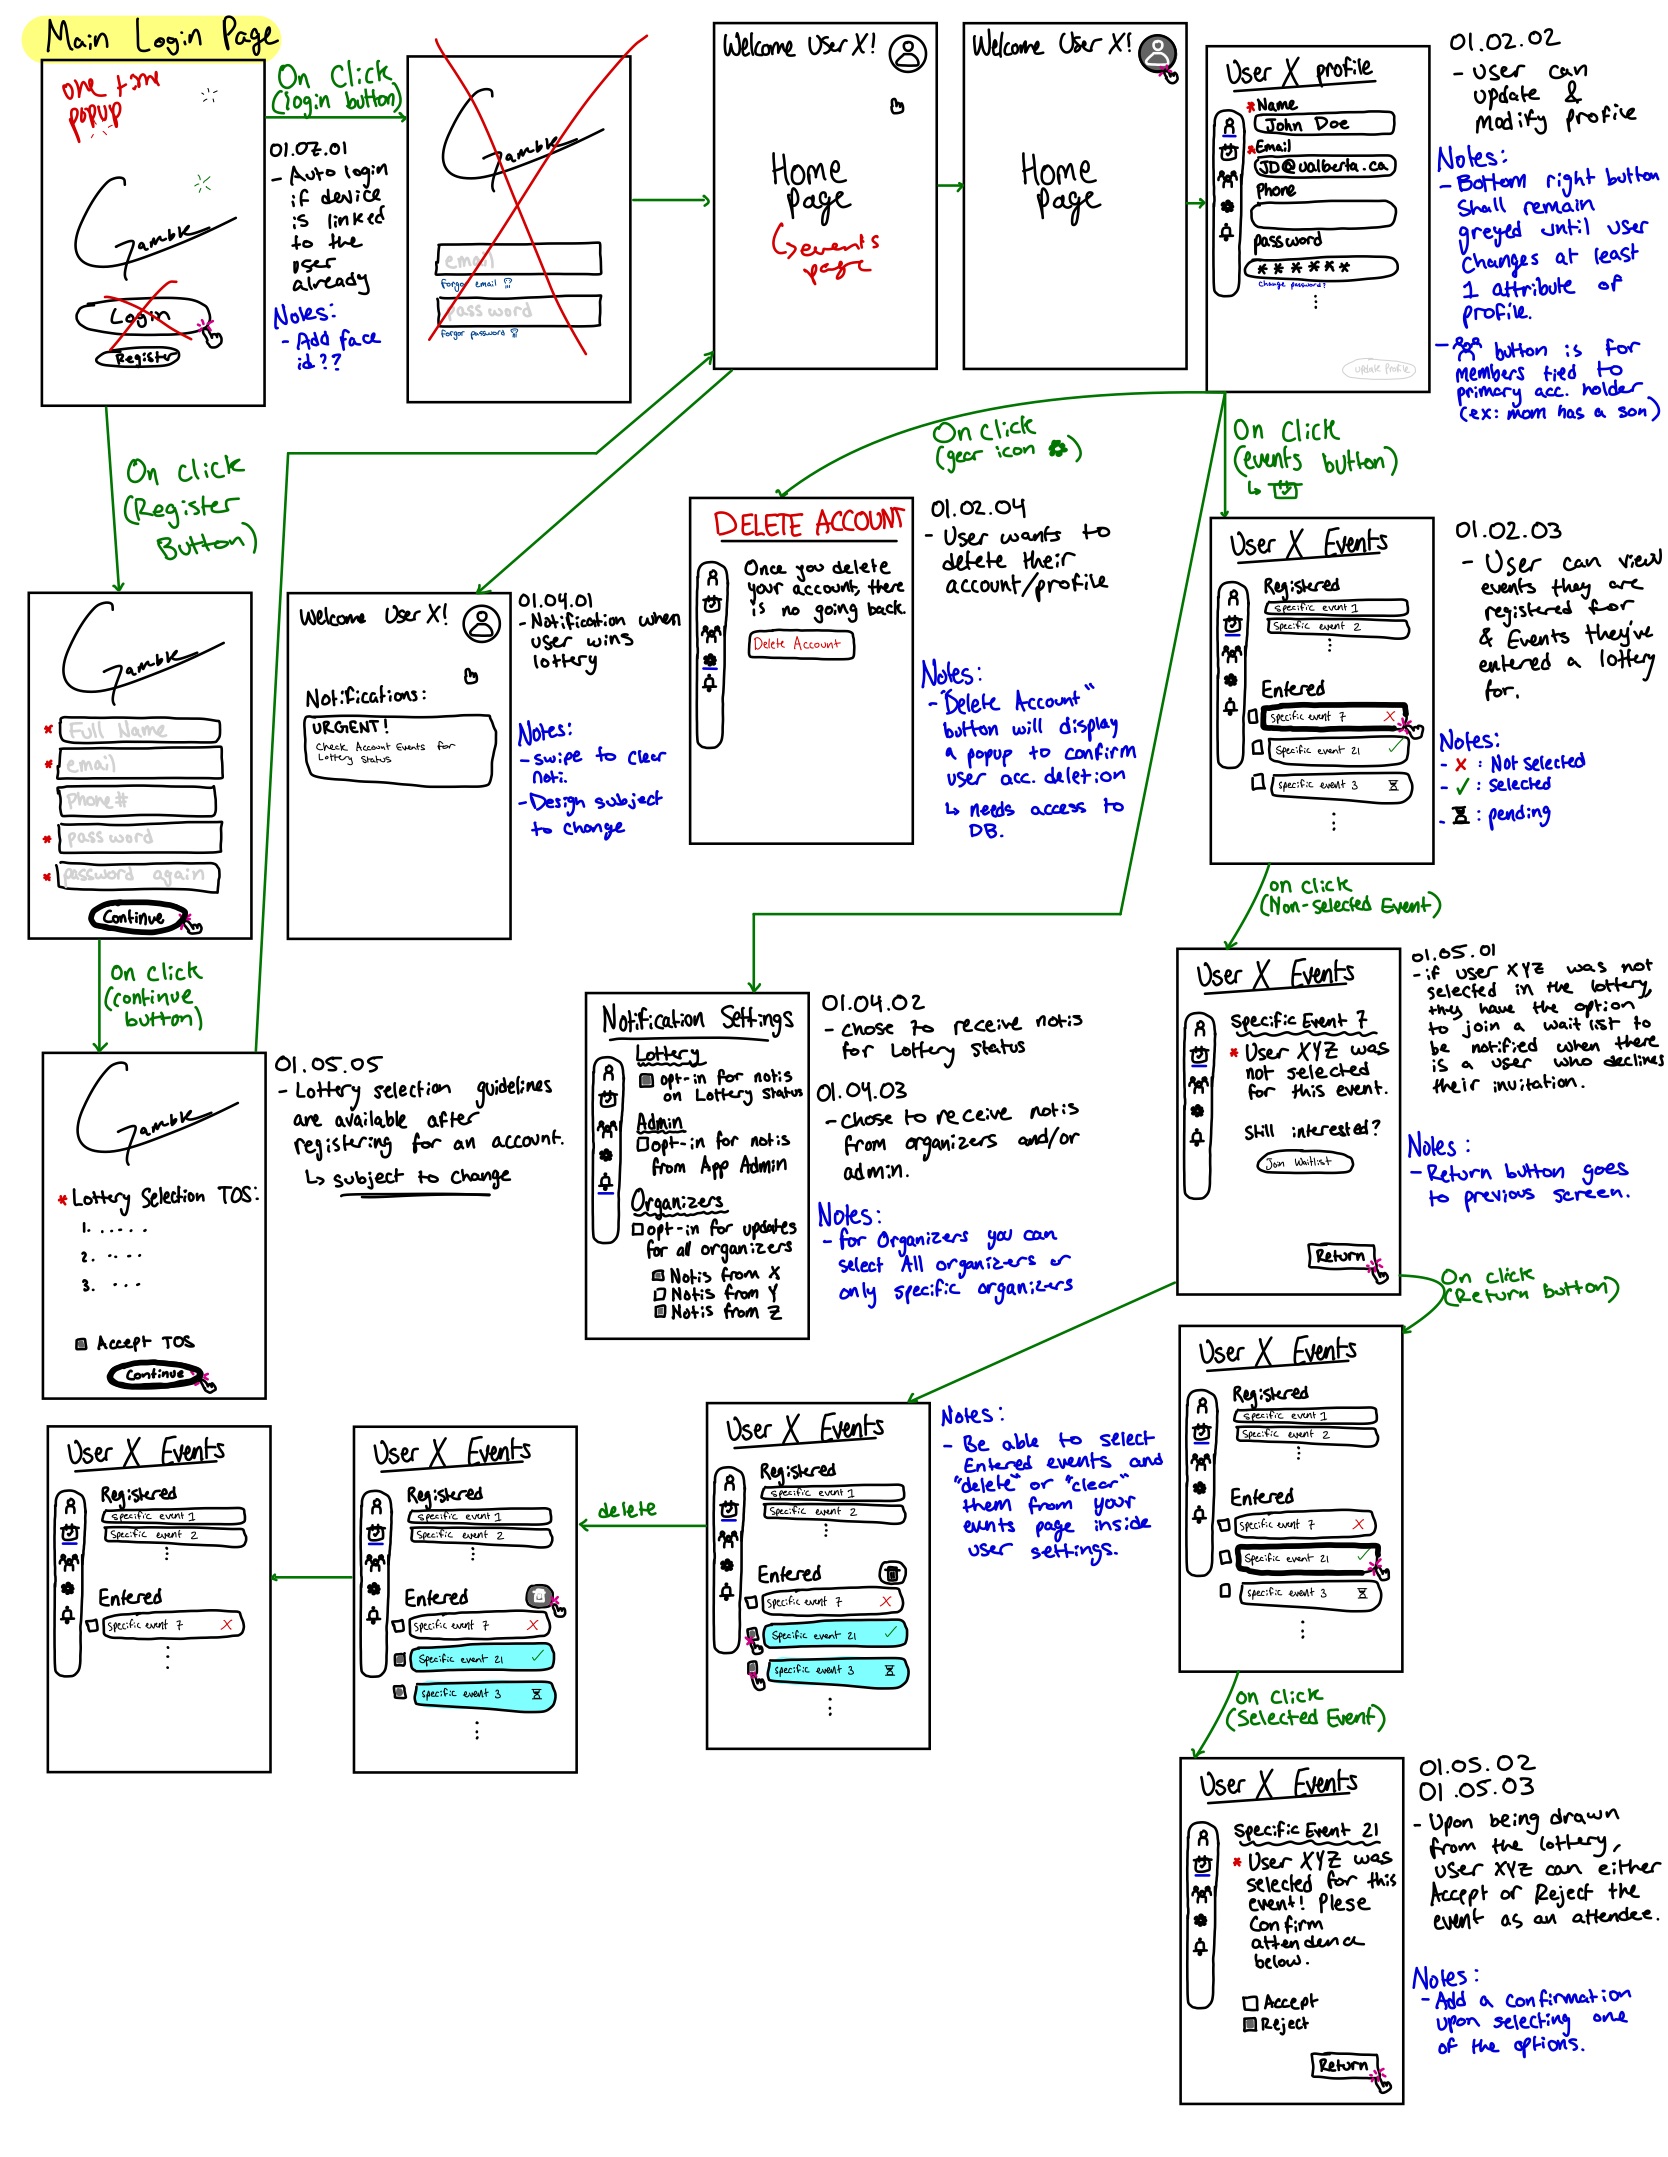 Main Login Page
one time
popup
Gamble
Login
Register
On Click
(login button)
01.02.01
- Auto login
if device
is linked
to the
user
already
Notes:
- Add face
id??
Gamble
email
forgor email
password
forgor password
Welcome User X!
Home
Page
↳ events
page
Welcome User X!
Home
Page
User X profile
*Name
John Doe
*Email
JD@ualberta.ca
Phone
password
******
change password?
update profile
01.02.02
- User can
update &
Modify profile
Notes:
- Bottom right button
shall remain
greyed until user
changes at least
1 attribute of
profile.
- button is for
members tied to
primary acc. holder
(ex: mom has a son)
On click
(Register
Button)
On click
(gear icon )
On Click
(events button)
↳
Gamble
* Full Name
* email
Phone#
* password
* password again
Continue
Welcome User X!
Notifications:
URGENT!
Check Account Events for
Lottery Status
01.04.01
- Notification when
user wins
lottery
Notes:
- swipe to clear
noti.
- Design subject
to change
DELETE ACCOUNT
Once you delete
your account, there
is no going back.
Delete Account
01.02.04
- User wants to
delete their
account/profile
Notes:
- "Delete Account"
button will display
a popup to confirm
user acc. deletion
↳ needs access to
DB.
User X Events
Registered
specific event 1
Specific event 2
Entered
specific event 7 X
Specific event 21 ✓
specific event 3
01.02.03
- User can view
events they are
registered for
& Events they've
entered a lottery
for.
Notes:
- X : Not selected
- ✓ : selected
- : pending
On click
(continue
button)
on click
(Non-selected Event)
Gamble
* Lottery Selection TOS:
1. .....
2. ....
3. ...
Accept TOS
Continue
01.05.05
- Lottery selection guidelines
are available after
registering for an account.
↳ subject to change
Notification Settings
Lottery
opt-in for notis
on Lottery status
Admin
opt-in for notis
from App Admin
Organizers
opt-in for updates
for all organizers
Notis from X
Notis from Y
Notis from Z
01.04.02
- chose to receive notis
for Lottery status
01.04.03
- Chose to receive notis
from organizers and/or
admin.
Notes:
- for Organizers you can
select All organizers or
only specific organizers
User X Events
Specific Event 7
* User XYZ was
not selected
for this event.
Still interested?
Join Waitlist
Return
01.05.01
- if user XYZ was not
selected in the lottery,
they have the option
to join a waitlist to
be notified when there
is a user who declines
their invitation.
Notes:
- Return button goes
to previous screen.
On click
(Return button)
User X Events
Registered
specific event 1
Specific event 2
Entered
Specific event 7 X
Specific event 21 ✓
specific event 3
User X Events
Registered
specific event 1
Specific event 2
Entered
specific event 7 X
User X Events
Registered
specific event 1
Specific event 2
Entered
specific event 7 X
Specific event 21 ✓
specific event 3
delete
User X Events
Registered
specific event 1
Specific event 2
Entered
specific event 7 X
Specific event 21 ✓
specific event 3
Notes:
- Be able to select
Entered events and
"delete" or "clear"
them from your
events page inside
user settings.
on click
(Selected Event)
User X Events
Specific Event 21
* User XYZ was
selected for this
event! Plese
Confirm
attendence
below.
Accept
Reject
Return
01.05.02
01.05.03
- Upon being drawn
from the lottery,
user XYZ can either
Accept or Reject the
event as an attendee.
Notes:
- Add a confirmation
upon selecting one
of the options.